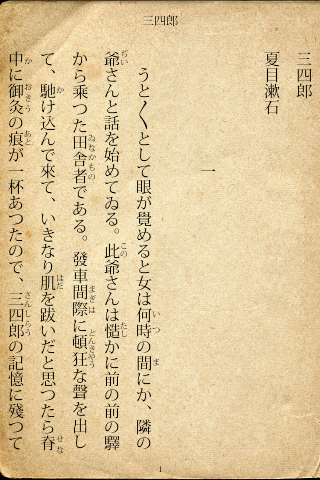 三四郎
三四郎
夏目漱石
一
うと〱として眼が覺めると女は何時の間にか、隣の
爺さんと話を始めてゐる。此爺さんは慥かに前の前の驛
から乗つた田舎者である。發車間際に頓狂な聲を出し
て、馳け込んで來て、いきなり肌を跋いだと思つたら脊
中に御灸の痕が一杯あつたので、三四郎の記憶に殘つて
1